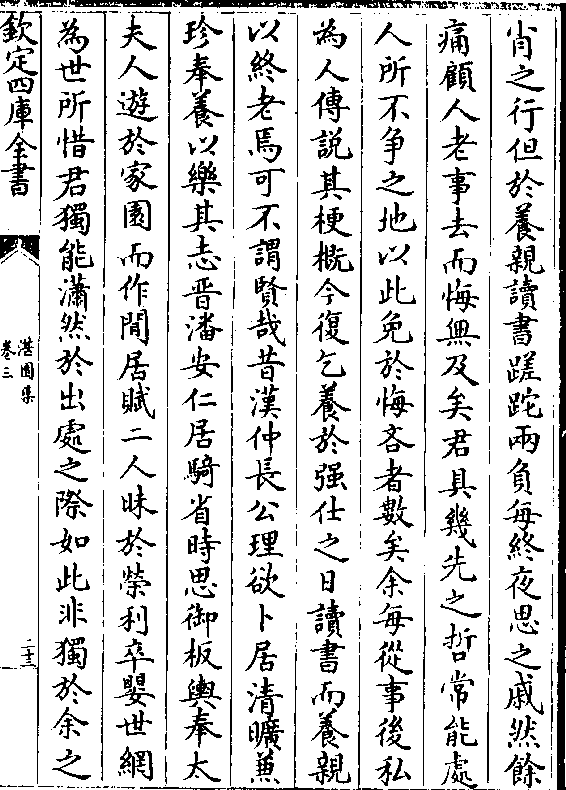 肖之行但於養親讀書蹉跎兩負每終夜思之戚然餘
痛顧人老事去而悔無及矣君具幾先之哲常能處
人所不争之地以此免於悔吝者數矣余每從事後私
為人傳説其梗概今復乞養於强仕之日讀書而養親
以終老焉可不謂賢哉昔漢仲長公理欲卜居清曠兼
珍奉養以樂其志晋潘安仁居騎省時思御板輿奉太
夫人遊於家園而作閒居賦二人昧於榮利卒嬰世網
為世所惜君獨能瀟然於出處之際如此非獨於余之
欽定四庫全書
湛園集
卷三
二十三